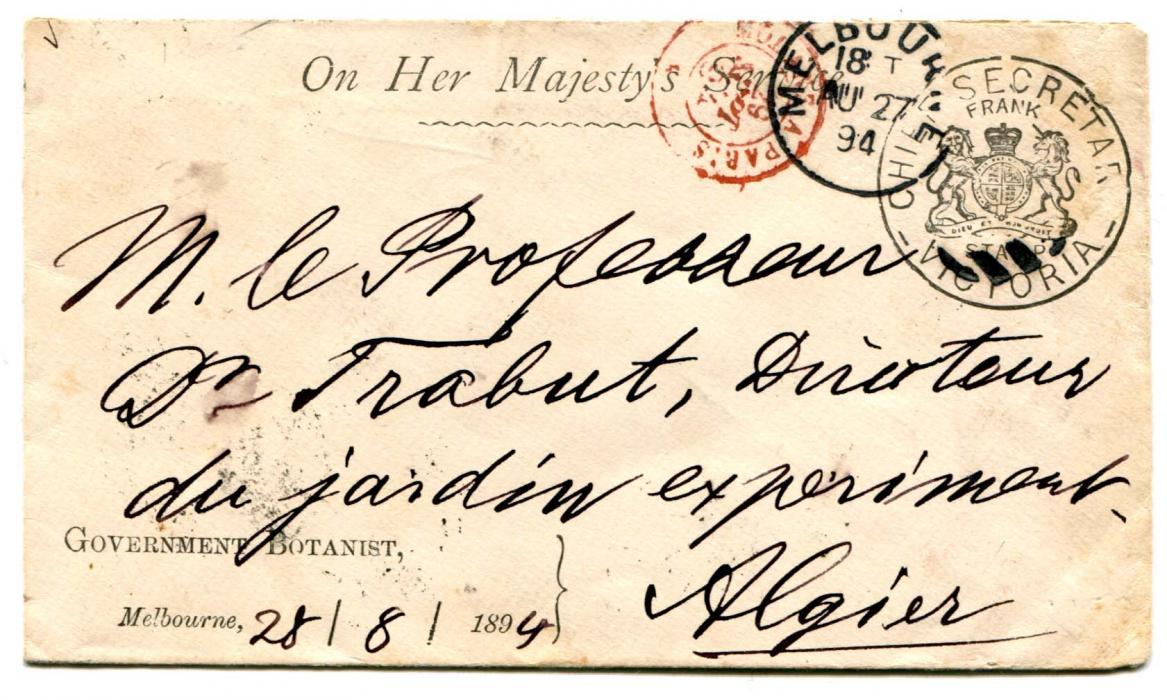 On Her Majesty's Service
MELBOURNE
18 T
AU 27
94
CHIEF SECRETARY
FRANK
DIEU ET MON DROIT
STAMP
- VICTORIA -
PARIS
M. le Professeur
Dr Trabut, Directeur
du jardin experiment.
GOVERNMENT BOTANIST,
Melbourne, 28 / 8 / 1894
Algier